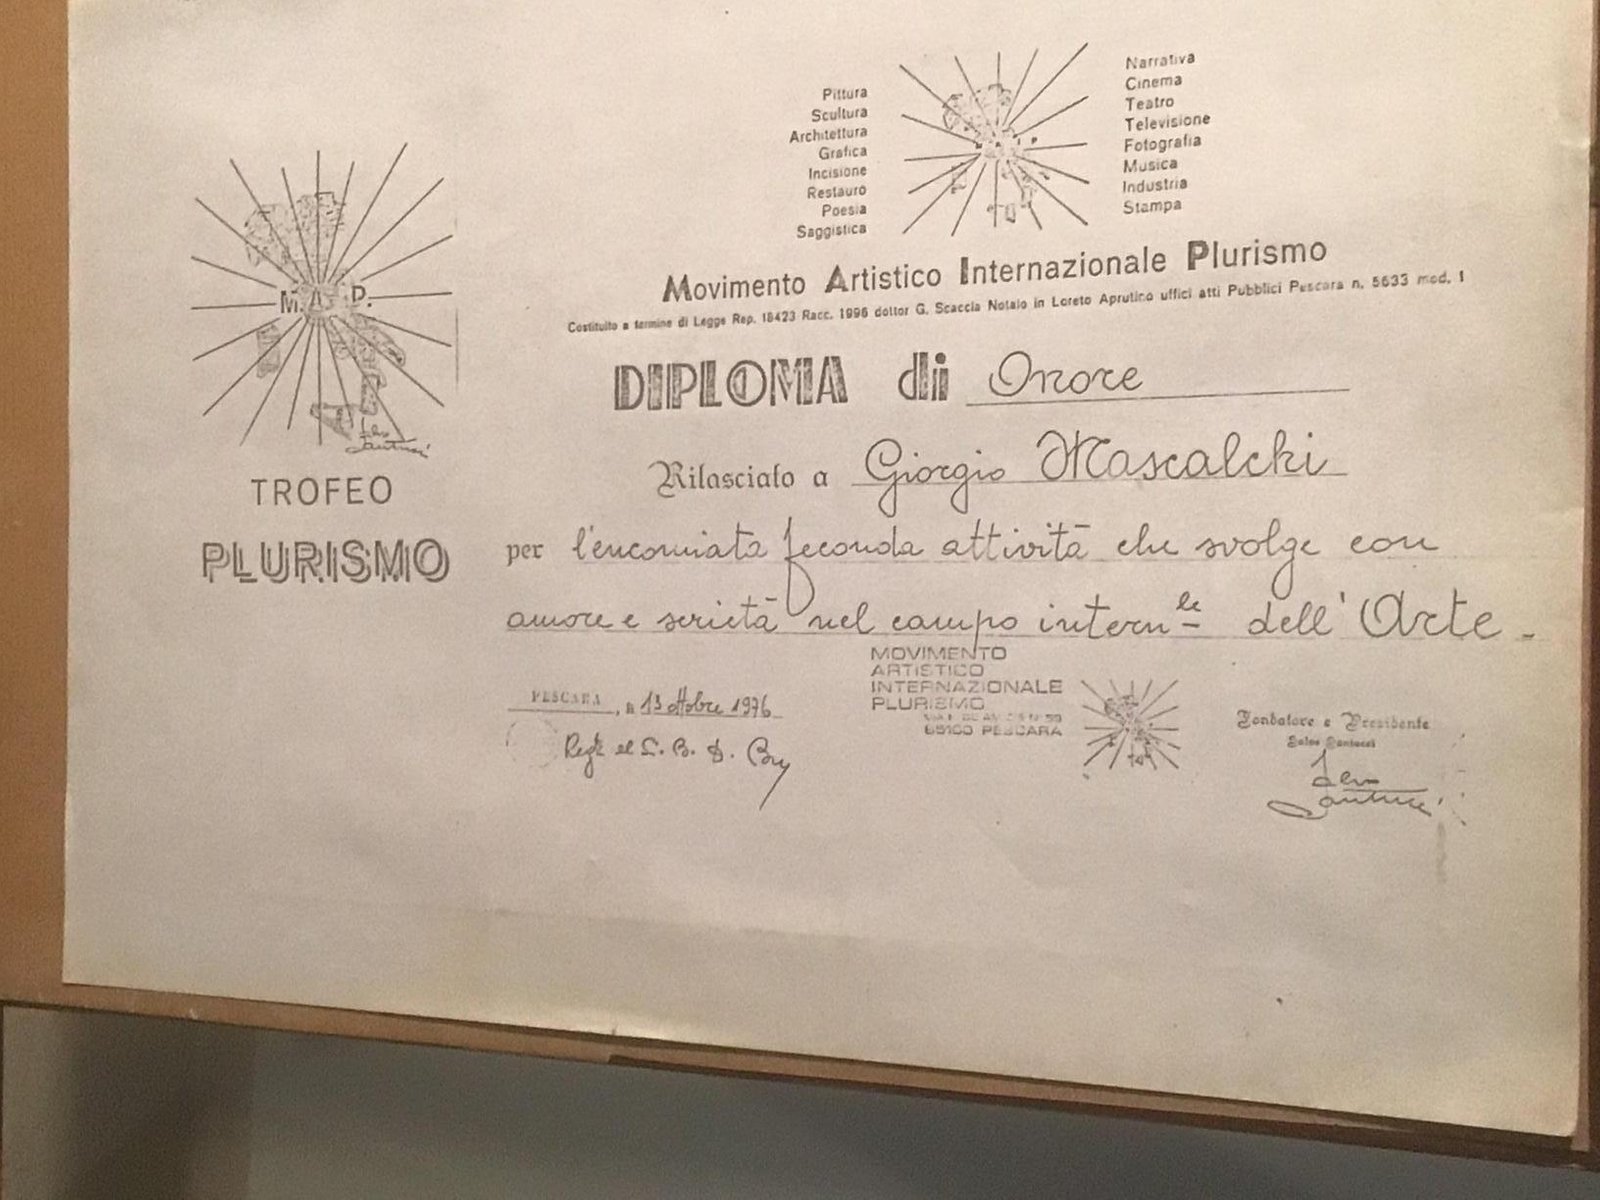 Pittura
Scultura
Architettura
Grafica
Incisione
Restauro
Poesia
Saggistica
Narrativa
Cinema
Teatro
Televisione
Fotografia
Musica
Industria
Stampa
M. A. I. P.
TROFEO
PLURISMO
Movimento Artistico Internazionale Plurismo
Costituito a termine di Legge Rep. 18423 Racc. 1996 dottor G. Scaccia Notaio in Loreto Aprutino uffici atti Pubblici Pescara n. 5633 mod. 1
DIPLOMA di Onore
Rilasciato a Giorgio Mascalchi
per l'encomiata feconda attività che svolge con
amore e serietà nel campo intern.le dell'Arte -
PESCARA, a 13 ottobre 1976
MOVIMENTO
ARTISTICO
INTERNAZIONALE
PLURISMO
65100 PESCARA
Fondatore e Presidente